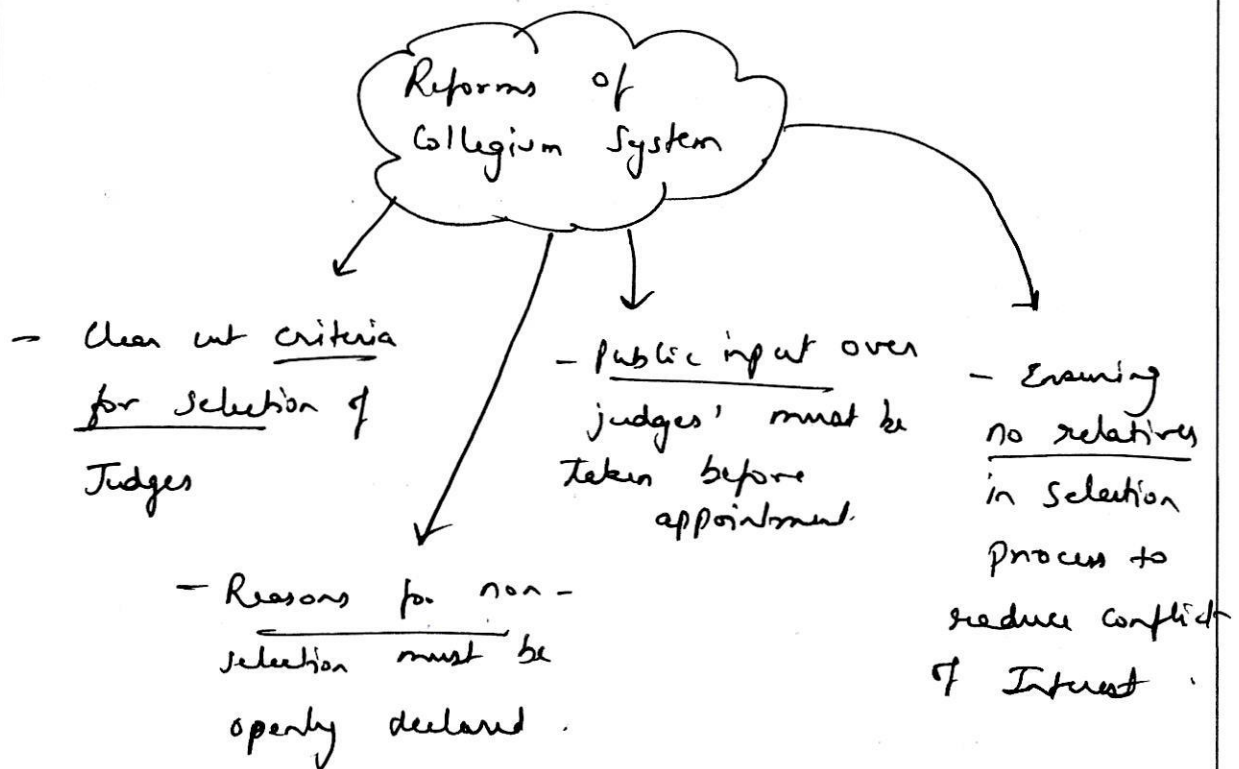 Reforms of
Collegium System
- Clear cut criteria
for selection of
Judges
- Reasons for non-
selection must be
openly declared.
- Public input over
judges' must be
taken before
appointment.
- Ensuring
no relatives
in selection
process to
reduce conflict
of Interest.